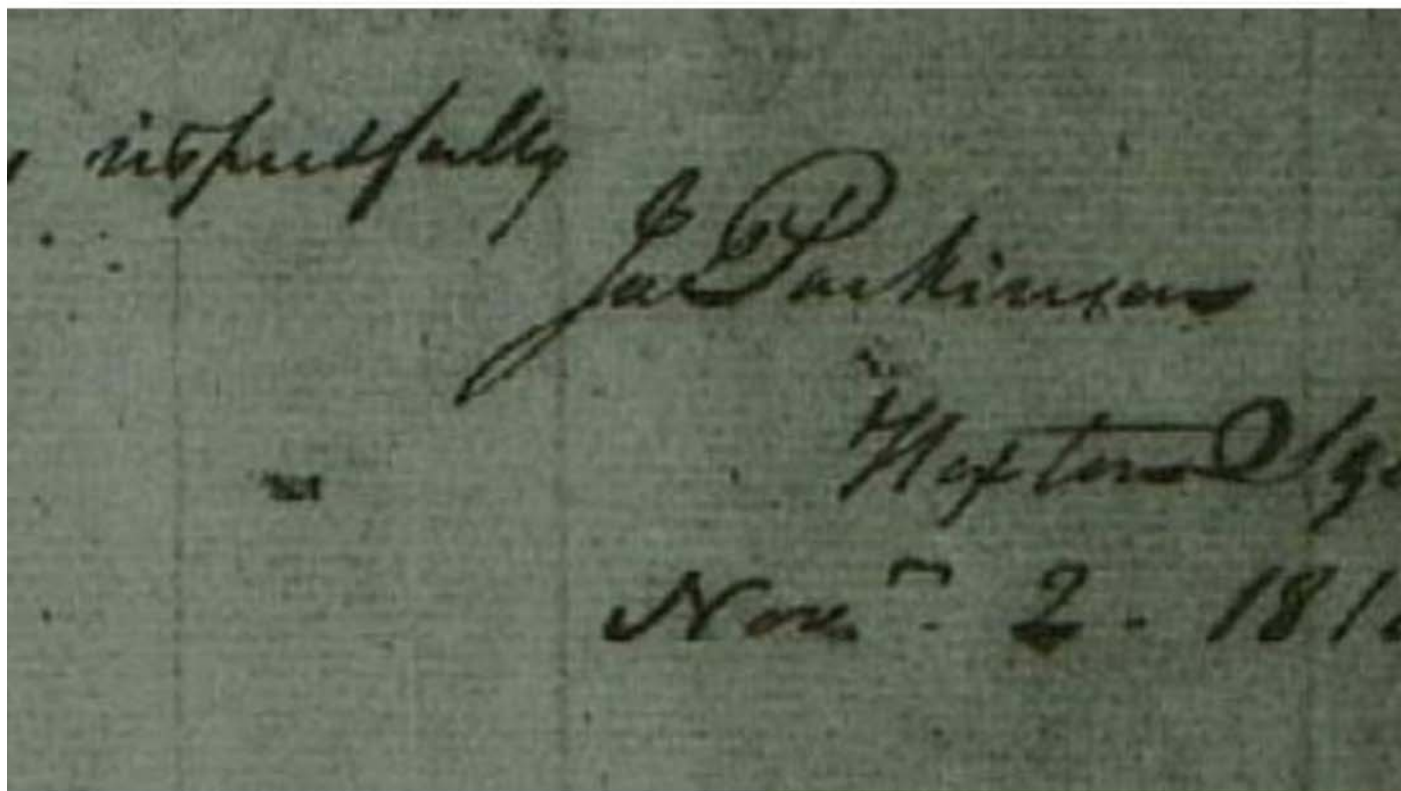 respectfully
Jas Parkinson
Hoxton Sq
Nov.r 2 - 181